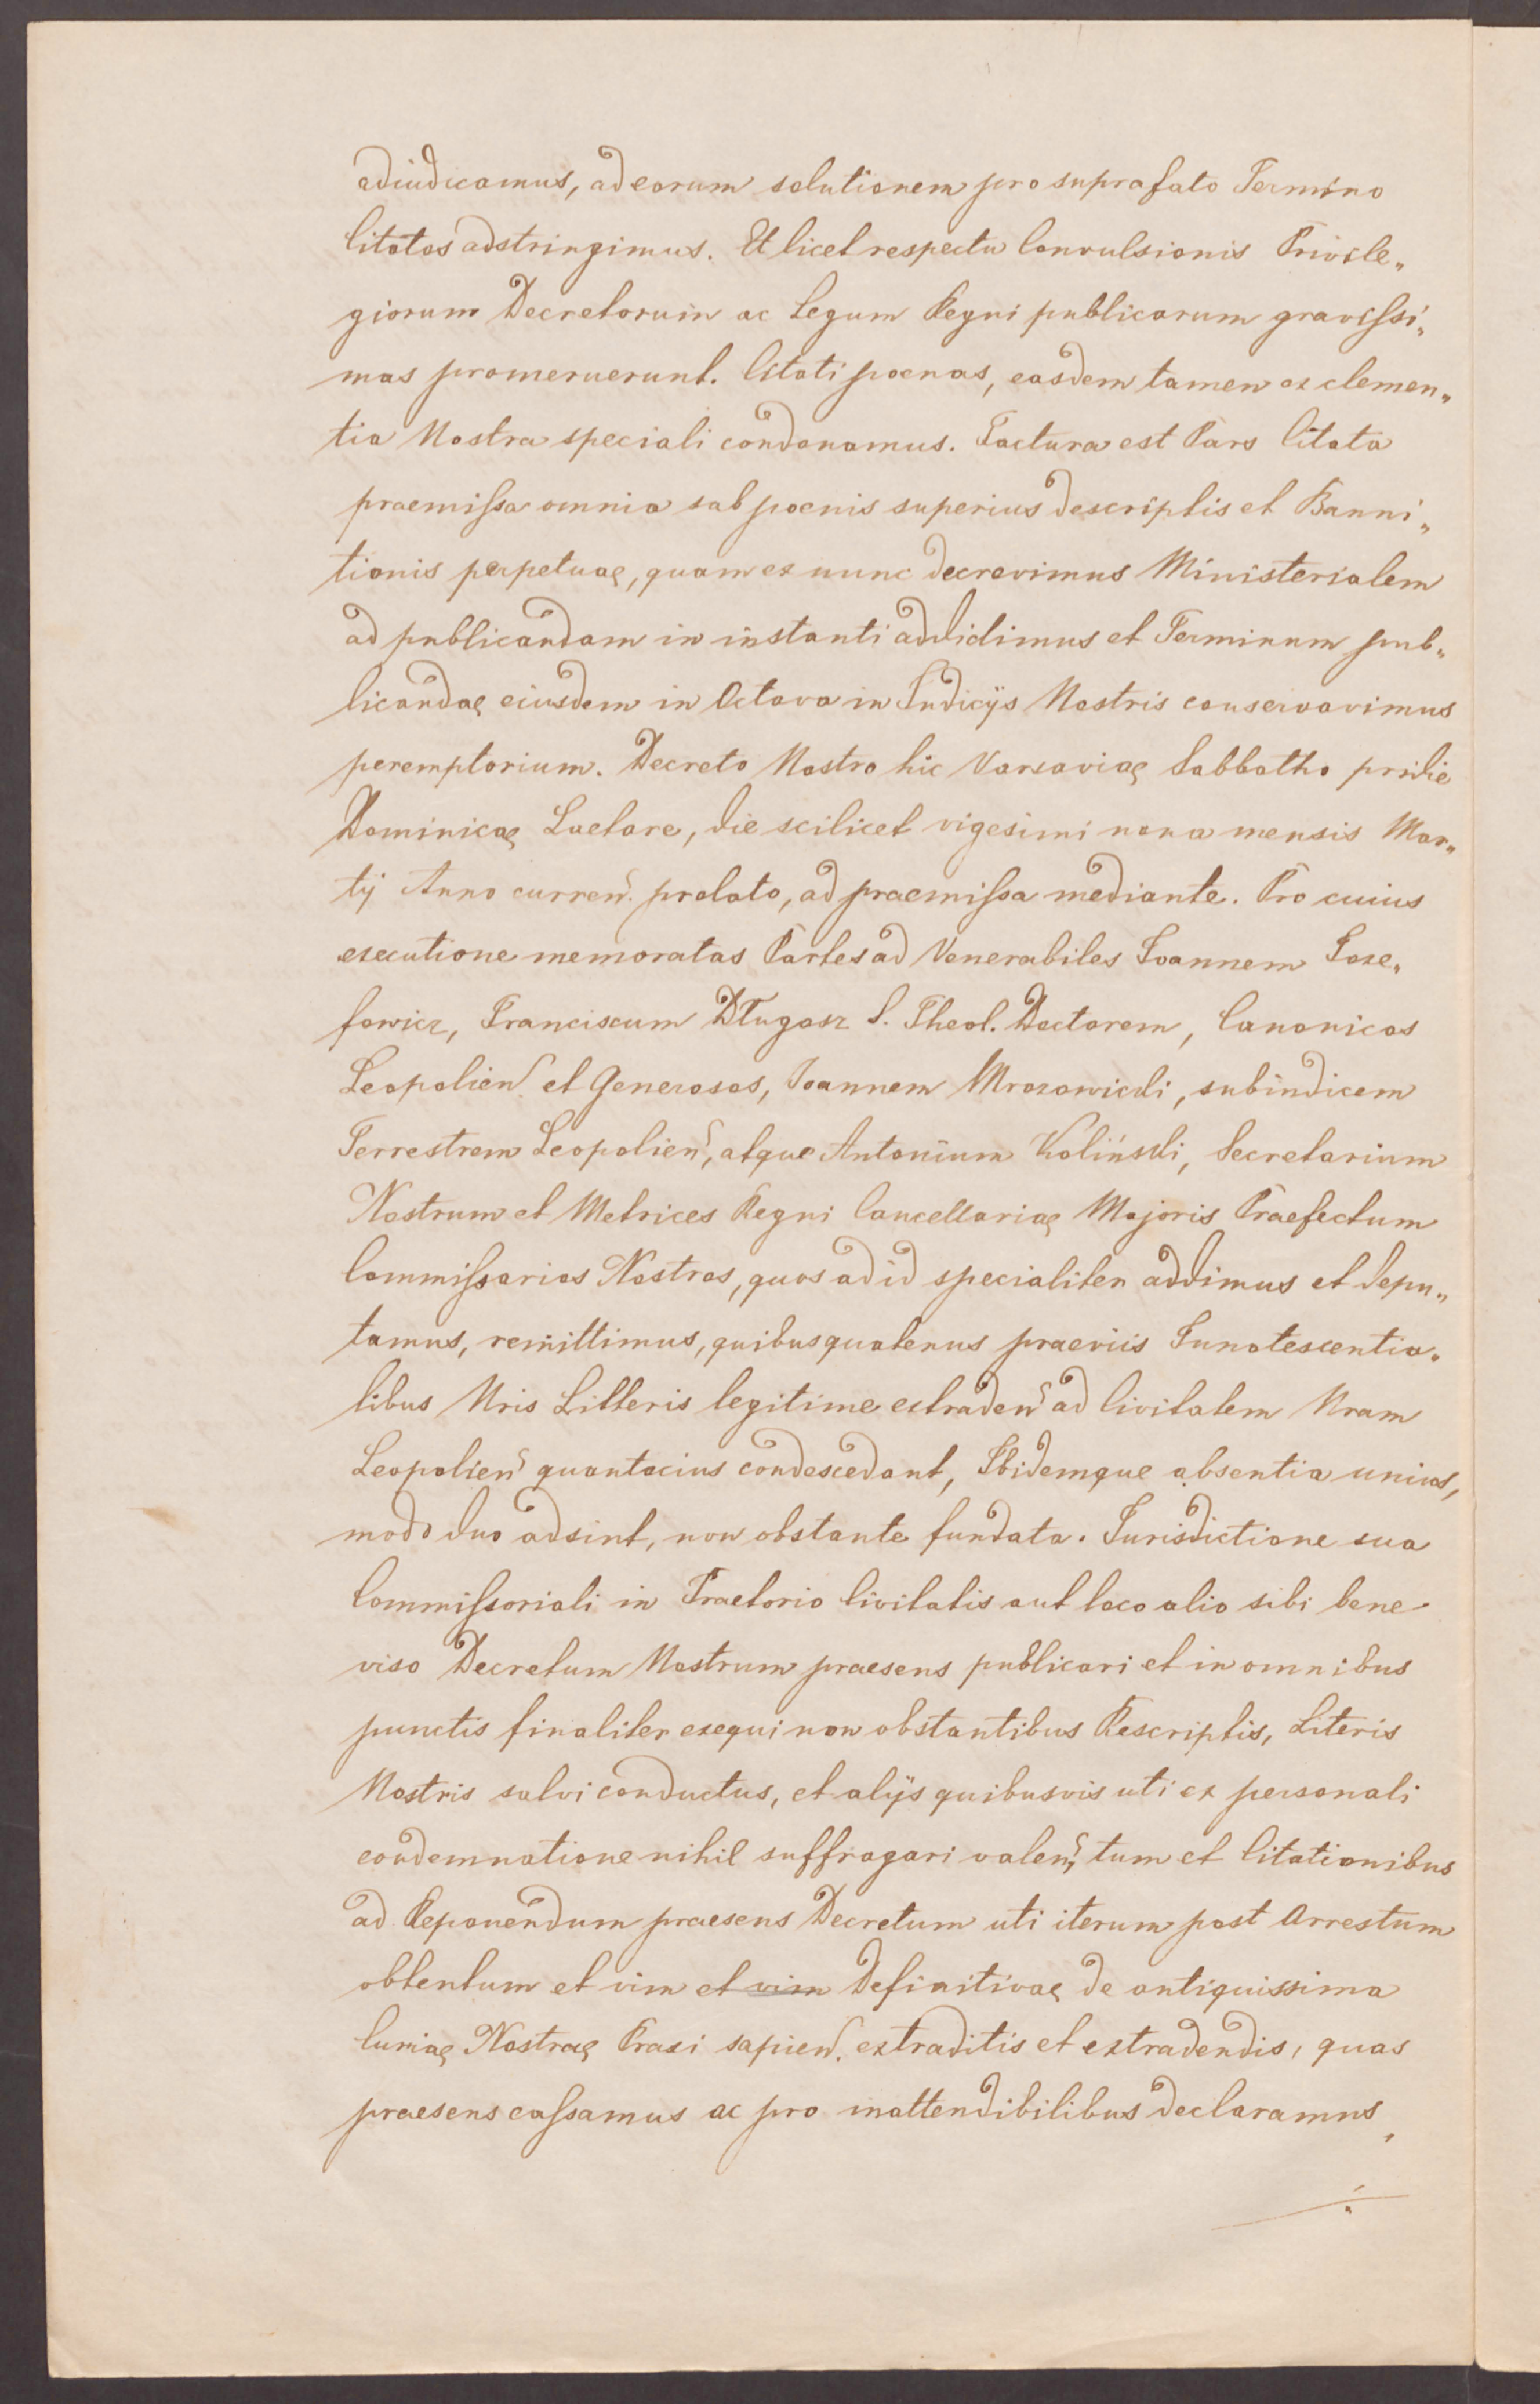 adiudicamus, ad eorum solutionem pro suprafato Termino
Citatos adstringimus. Et licet respectu Convulsionis Privile„
giorum Decretorum ac Legum Regni publicarum gravissi„
mas promeruerunt. Citati poenas, easdem tamen ex clemen„
tia Nostra speciali condonamus. Factura est Pars Citata
praemissa omnia sub poenis superius descriptis et Banni„
tionis perpetuae, quam ex nunc decrevimus Ministerialem
ad publicandam in instanti addidimus et Terminum pub„
licandae eiusdem in Octava in Iudicijs Nostris conservavimus
peremptorium. Decreto Nostro hic Varsaviae Sabbatho pridie
Dominicae Laetare, die scilicet vigesimi nona mensis Mar„
tij Anno curren. prolato, ad praemissa mediante. Pro cuius
executione memoratas Partes ad Venerabiles Ioannem Joze„
fowicz, Franciscum Długosz S. Theol. Doctorem, Canonicos
Leopolien. et Generosos, Joannem Mrozowicki, subiudicem
Terrestrem Leopolien, atque Antonium Koliński, Secretarium
Nostrum et Metrices Regni Cancellariae Majoris Praefectum
Commissarios Nostros, quos ad id specialiter addimus et depu„
tamus, remittimus, quibus quatenus praeviis Innotescentia„
libus Nris Litteris legitime extraden ad Civitatem Nram
Leopolien quantocius condescedant, Ibidemque absentia unius,
modo duo adsint, non obstante fundata. Jurisdictione sua
Commissoriali in Praetorio Civitatis aut loco alio sibi bene
viso Decretum Nostrum praesens publicari et in omnibus
punctis finaliter exequi non obstantibus Rescriptis, Literis
Nostris salvi conductus, et alijs quibusvis uti ex personali
condemnatione nihil suffragari valen, tum et Citationibus
ad Reponendum praesens Decretum uti iterum post Arrestum
obtentum et vim et vim Definitivae de antiquissima
Curiae Nostrae Praxi sapien. extraditis et extradendis, quas
praesens cassamus ac pro inattendibilibus declaramus,